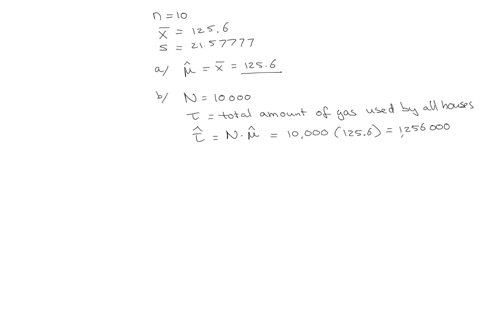 n = 10
x̄ = 125.6
s = 21.57777
a/ μ̂ = x̄ = 125.6
b/ N = 10000
τ = total amount of gas used by all houses
τ̂ = N·μ̂ = 10,000 (125.6) = 1,256 000